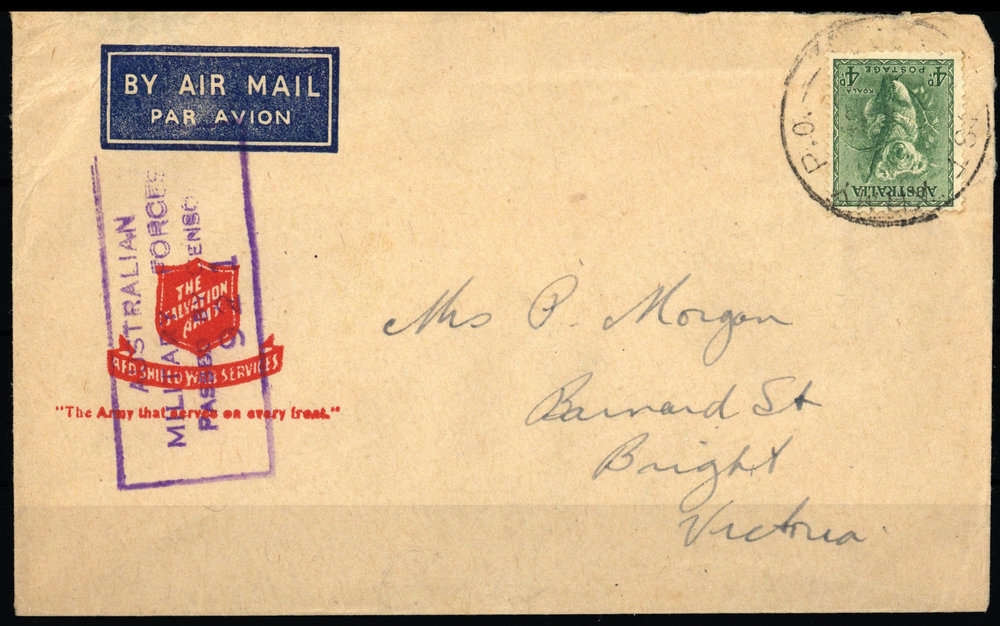 BY AIR MAIL
PAR AVION
4D 4D
POSTAGE
KOALA
AUSTRALIA
P.O.
AUSTRALIAN
MILITARY FORCES
PASSED BY CENSOR
921
THE
SALVATION
ARMY
RED SHIELD WAR SERVICES
"The Army that serves on every front."
Mrs P. Morgan
Barnard St
Bright
Victoria